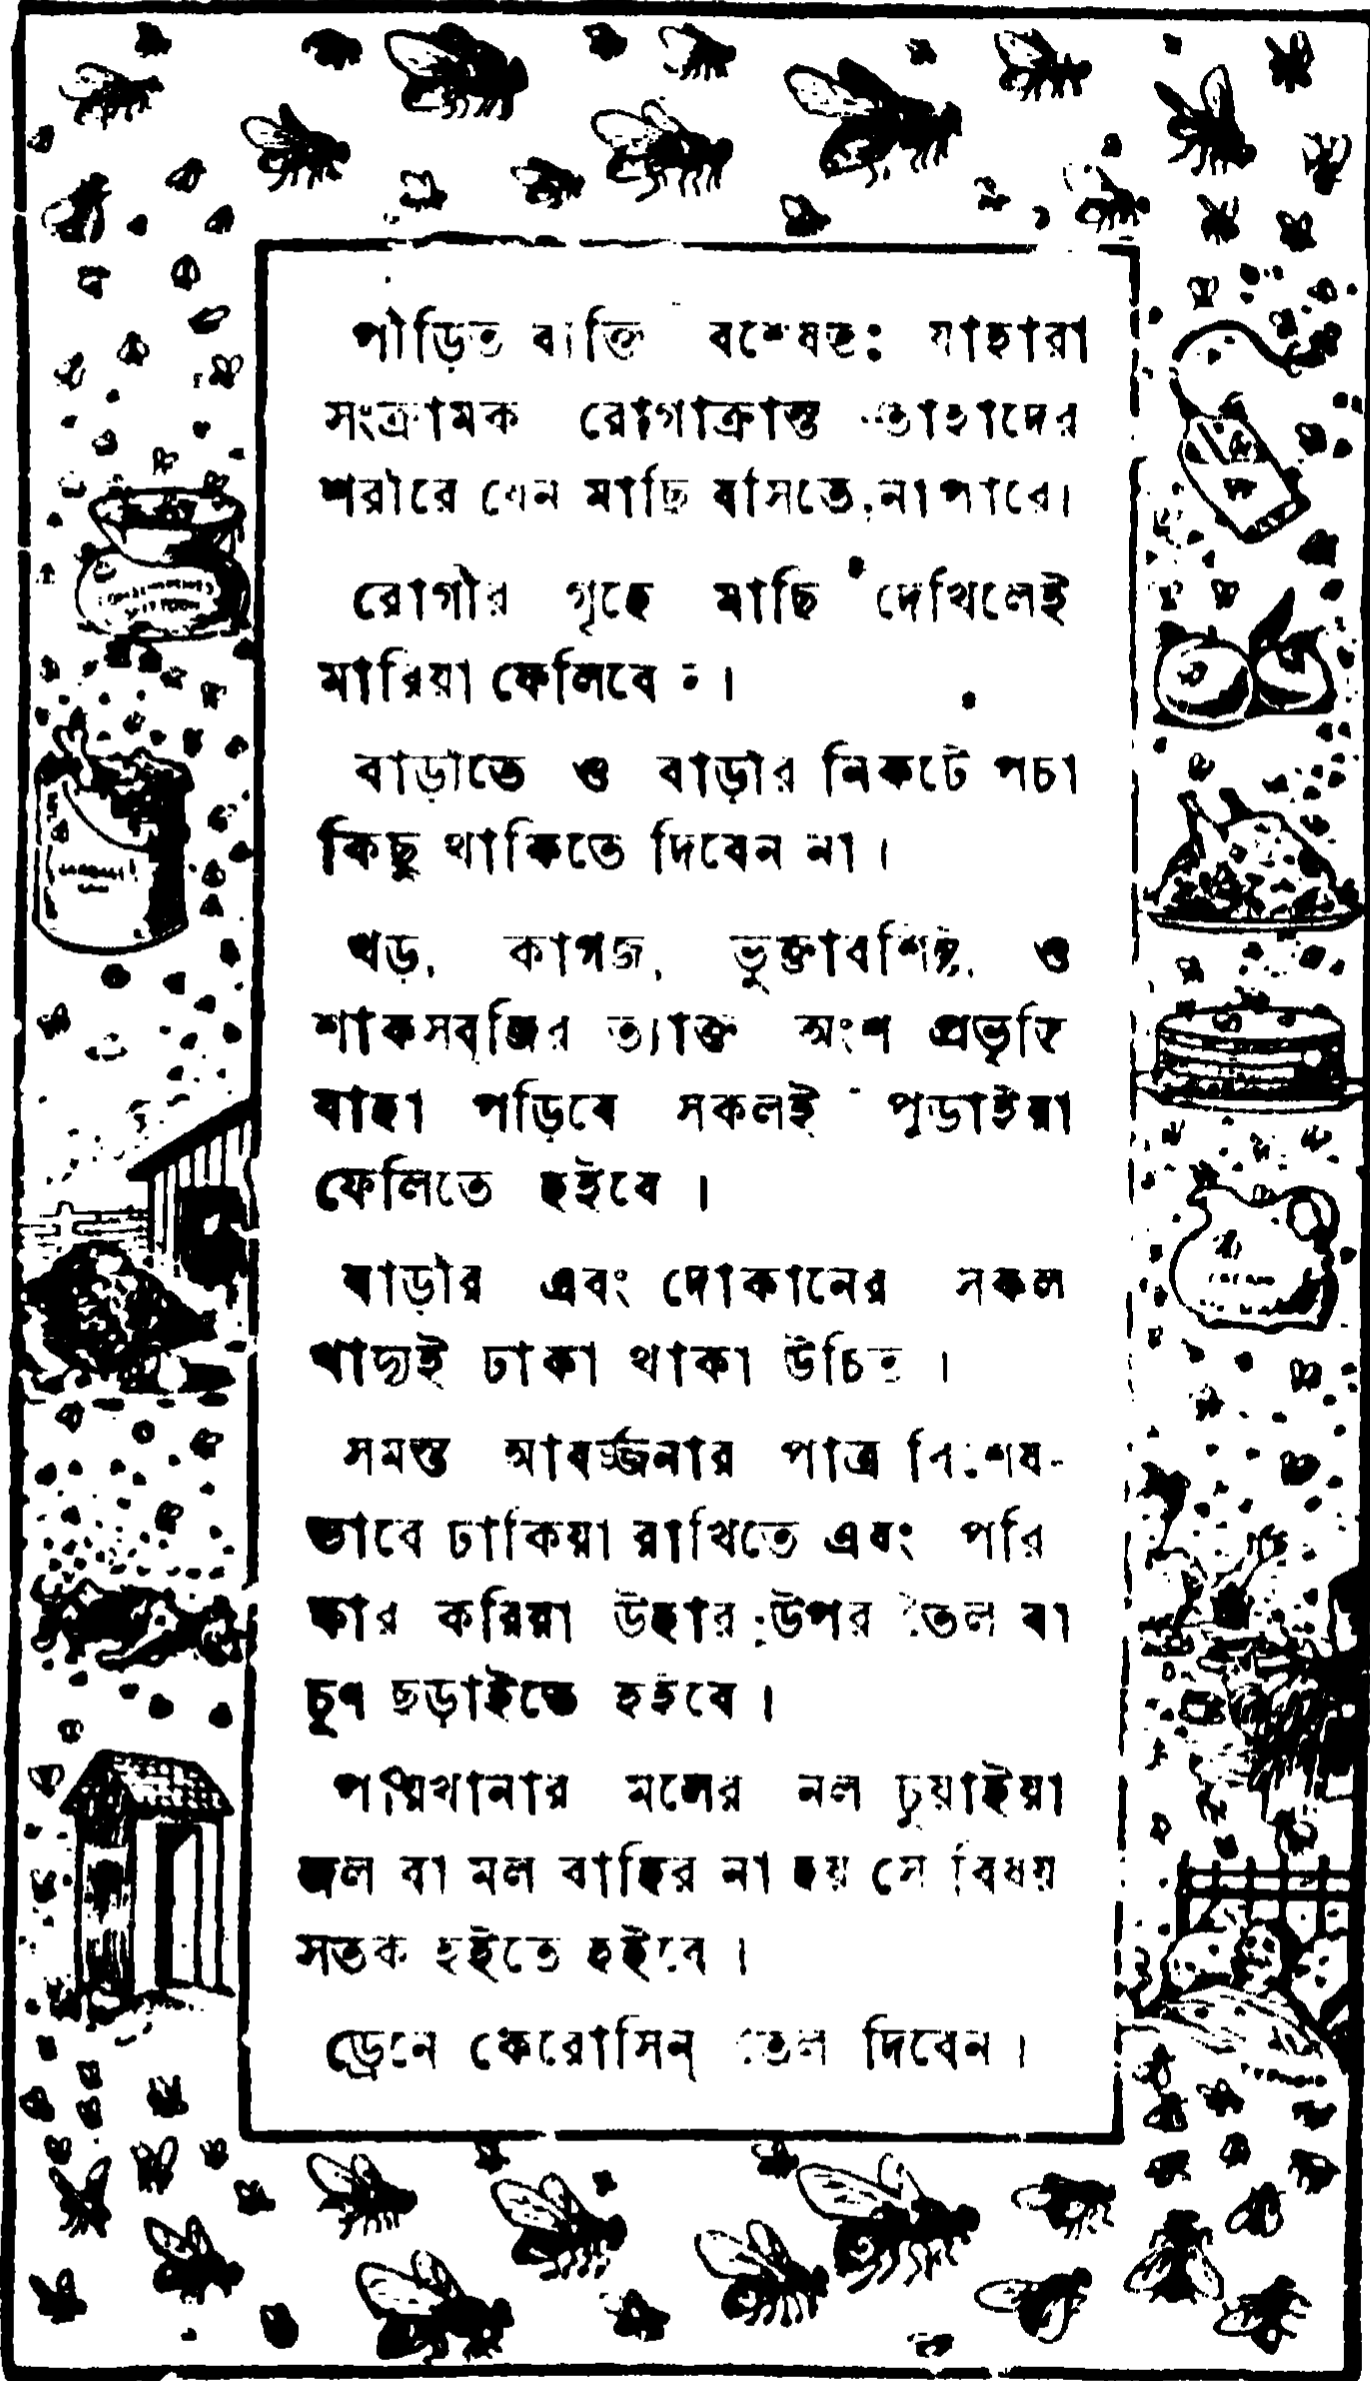 পীড়িত ব্যক্তি বিশেষতঃ যাহারা
সংক্রামক রোগাক্রান্ত তাহাদের
শরীরে যেন মাছি বসিতে না পারে।
রোগীর গৃহে মাছি দেখিলেই
মারিয়া ফেলিবেন।
বাড়ীতে ও বাড়ীর নিকটে পচা
কিছু থাকিতে দিবেন না।
খড়, কাগজ, ভুক্তাবশিষ্ট, ও
শাকসব্জির ত্যাক্ত অংশ প্রভৃতি
যাহা পড়িবে সকলই পুড়াইয়া
ফেলিতে হইবে।
বাড়ীর এবং দোকানের সকল
খাদ্যই ঢাকা থাকা উচিত।
সমস্ত আবর্জ্জনার পাত্র বিশেষ-
ভাবে ঢাকিয়া রাখিতে এবং পরি
ষ্কার করিয়া উহার উপর তৈল বা
চূণ ছড়াইতে হইবে।
পায়খানার মলের নল চুয়াইয়া
জল বা মল বাহির না হয় সে বিষয়
সতর্ক হইতে হইবে।
ড্রেনে কেরোসিন্ তেল দিবেন।